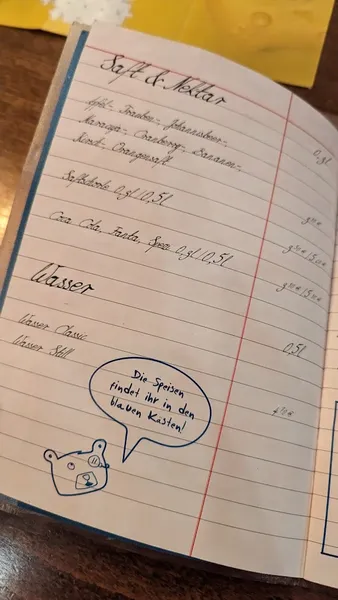 Saft & Nektar
Apfel-, Trauben-, Johannisbeer-,
Maracuja-, Cranberry-, Bananen-,
Orangensaft
Saftschorle 0,2l / 0,5l
Coca Cola, Fanta, Spezi 0,2l / 0,5l
Wasser
0,5l
Wasser Classic
Wasser Still
Die Speisen
findet ihr in den
blauen Kästen!